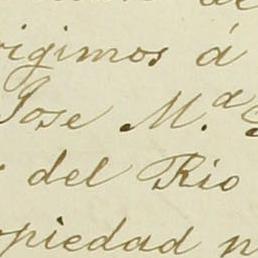 de
rigimos á
Jose M.ª
del Rio
ropiedad n